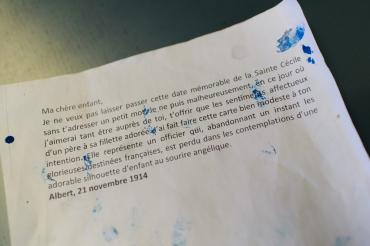 Ma chère enfant,
Je ne veux pas laisser passer cette date mémorable de la Sainte Cécile
sans t'adresser un petit mot. Je ne puis malheureusement, en ce jour où
j'aimerai tant être auprès de toi, t'offrir que les sentiments affectueux
d'un père à sa fillette adorée. J'ai fait faire cette carte bien modeste à ton
intention. Elle représente un officier qui, abandonnant un instant les
glorieuses destinées françaises, est perdu dans les contemplations d'une
adorable silhouette d'enfant au sourire angélique.
Albert, 21 novembre 1914